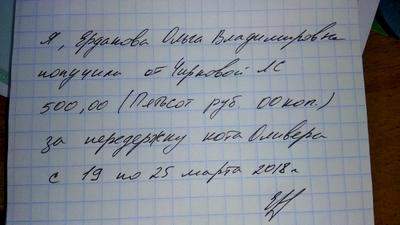 Я, Ерданова Ольга Владимировна
получила от Чирковой ЛС
500,00 (Пятьсот руб. 00коп.)
за передержку кота Оливера
с 19 по 25 марта 2018г